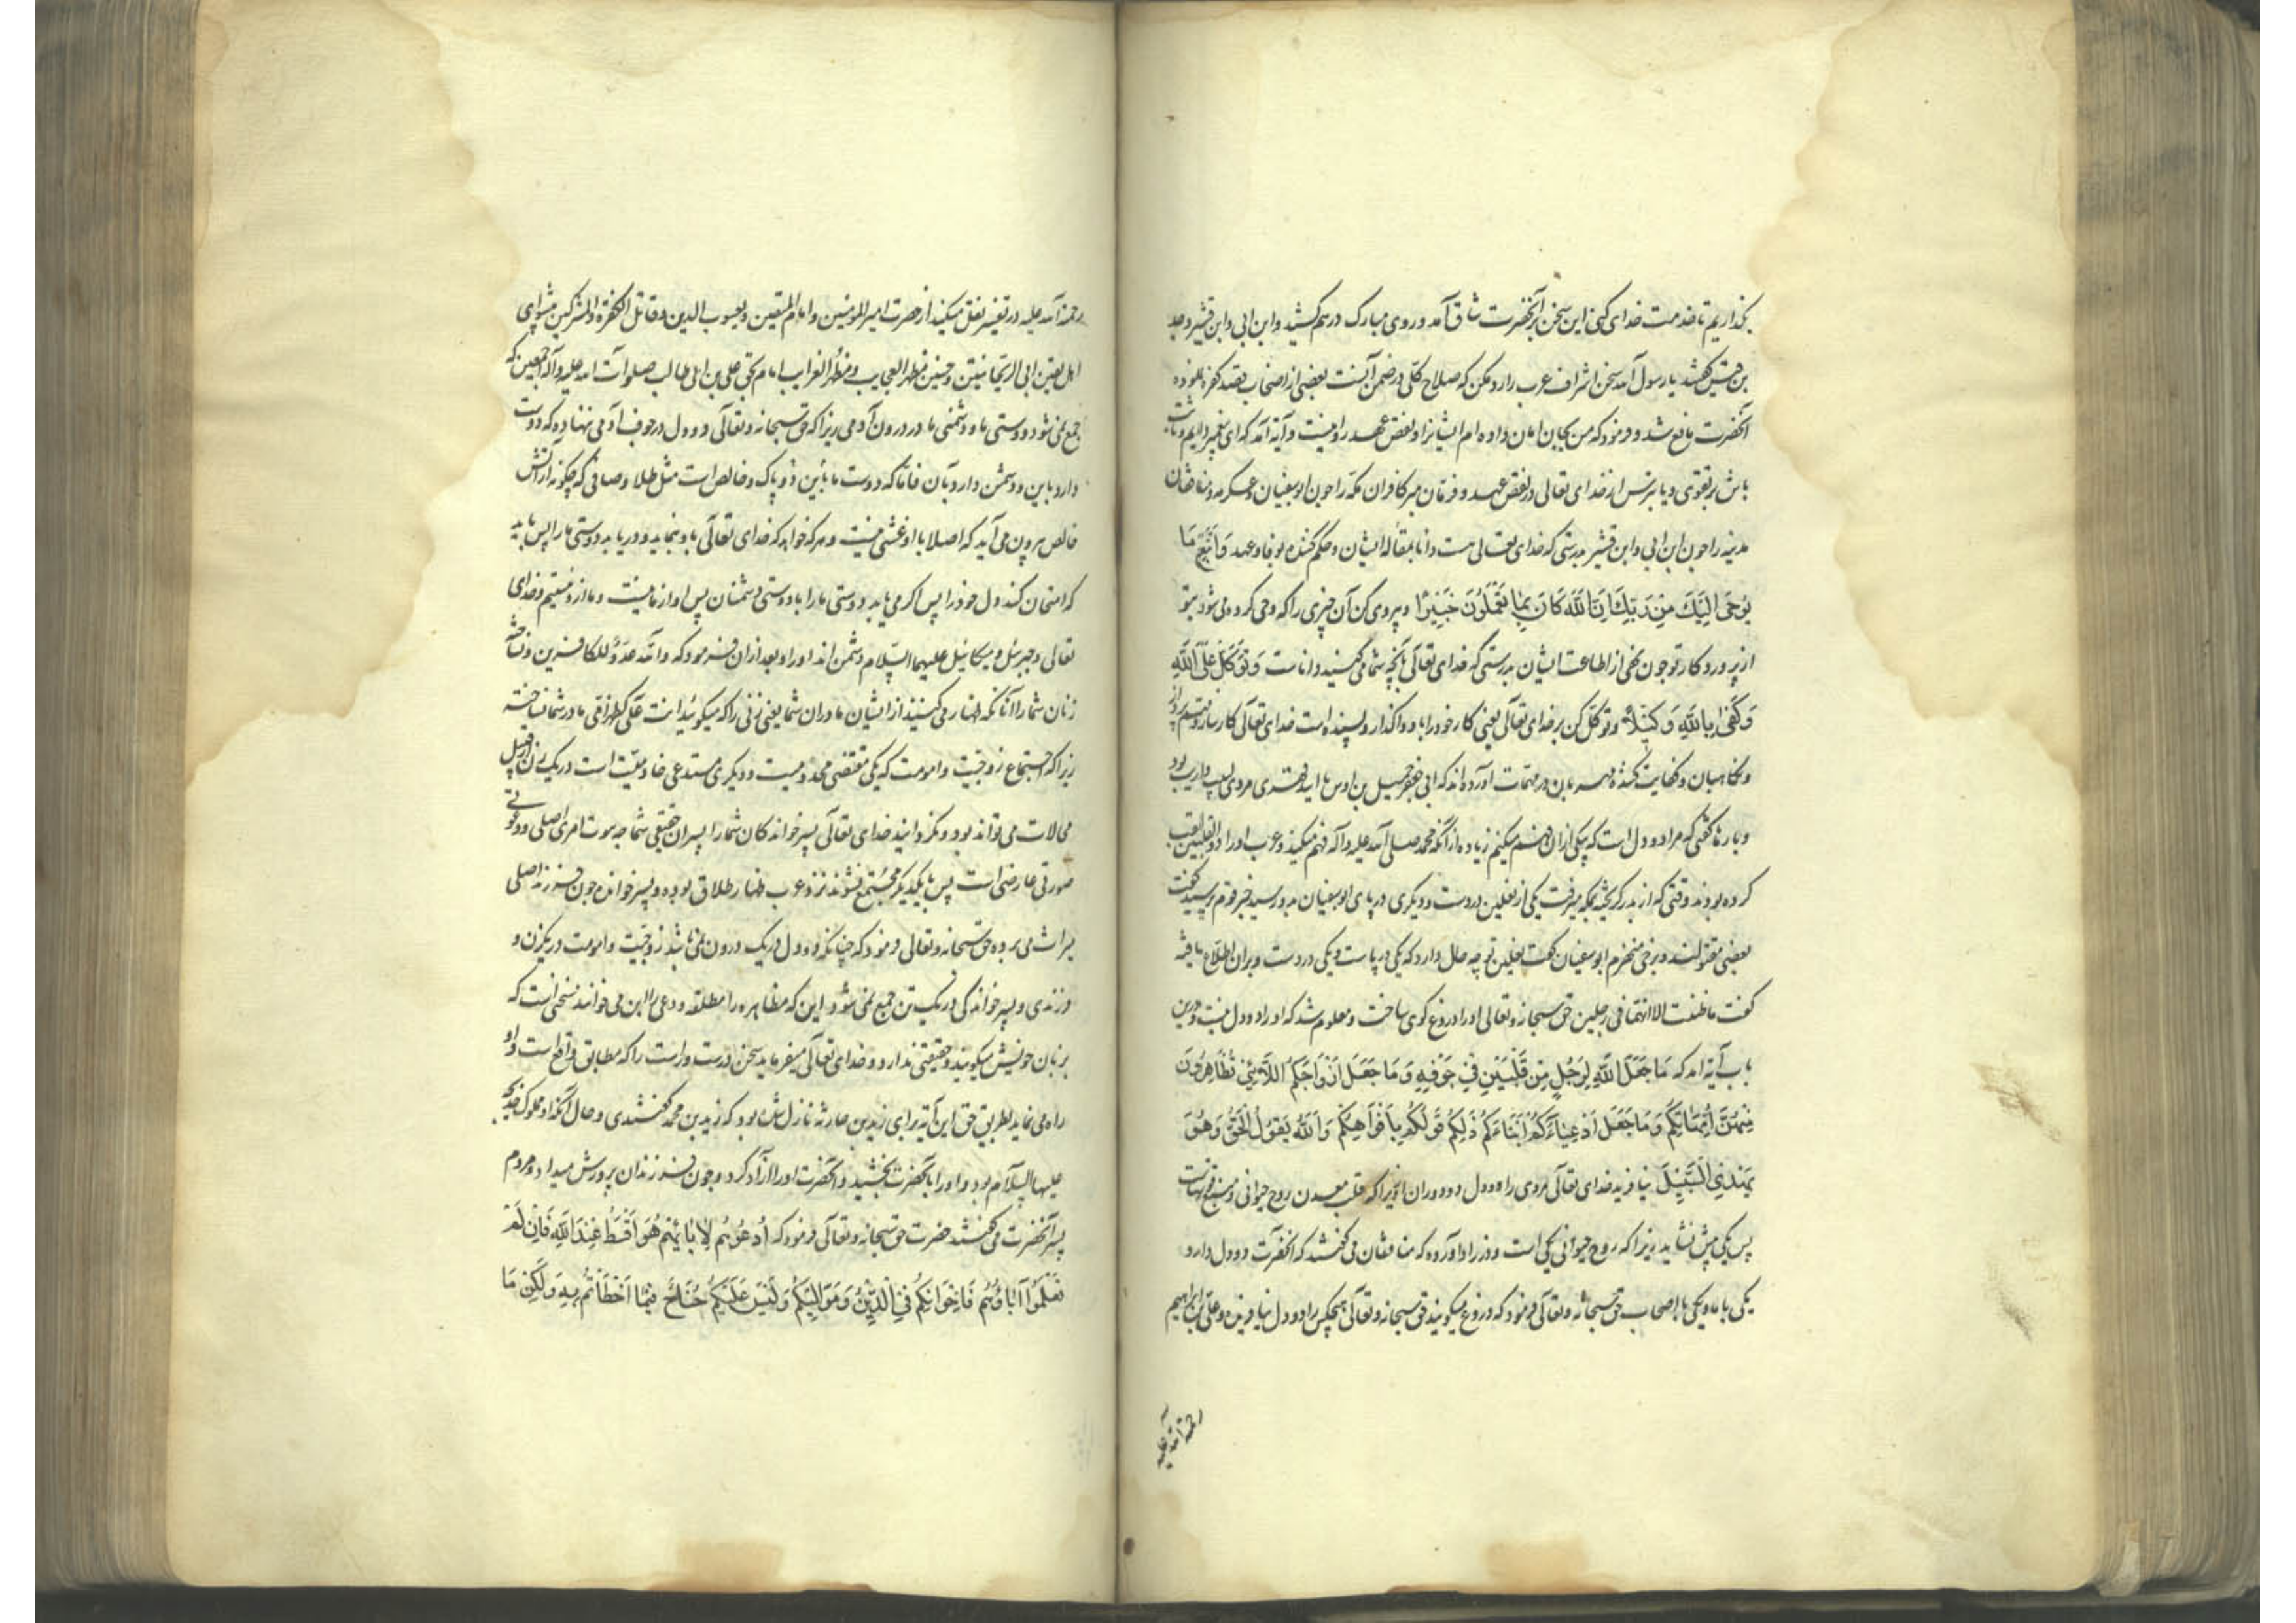 بگذاریم تا خدمت خدای کنی این سخن بر آنحضرت شاق آمد و روی مبارک درهم کشید و ابن ابی و ابن قشیر و جد
بن قیس گفتند یا رسول الله سخن اشراف عرب را رد مکن که صلاح کلی در ضمن آنست بعضی از اصحاب بقصد کفره
آنحضرت مانع شد و فرمود که من بجان امان داده‌ام ایشانرا و نقض عهد روا نیست و آیه آمد که ای پیغمبر دایم و ثابت
باش بر تقوی و یا بترس از خدای تعالی در نقض عهد و فرمان مبر کافران مکه را چون ابوسفیان و عکرمه و منافقان
مدینه را چون ابن ابی و ابن قشیر بدرستی که خدای تعالی هست دانا بمقاله ایشان و حکم کننده بوفاء عهد وَاتَّبِعْ مَا
یُوحَى اِلَیْكَ مِنْ رَبِّكَ اِنَّ اللّٰهَ كَانَ بِمَا تَعْمَلُونَ خَبِیْرًا و پیروی کن آن چیزی را که وحی کرده می شود بتو
از پروردکار تو چون نهی از اطاعت ایشان بدرستی که خدای تعالی بآنچه شما می کنید داناست وَتَوَكَّلْ عَلَى اللّٰهِ
وَكَفَى بِاللّٰهِ وَكِیْلاً و توکل کن بر خدای تعالی یعنی کار خود را باو واکذار و بسنده است خدای تعالی کارساز
و نکاهبان و کفایت کننده مهمات آورده‌اند که ابی معمر جمیل بن اوس یا اسد فهری مردی لبیب و اریب بود
و بارها کفتی که مرا دو دل است که بیکی از ان فهم میکنم زیاده از آنکه محمد صلی الله علیه وآله فهم میکند و عرب او را ذو القلبین لقب
کرده بودند وقتی که از بدر کریخته بمکه میرفت یکی از نعلین در دست و دیکری در پای ابوسفیان بدو رسید خبر قوم پرسید کفت
بعضی مقتولند و برخی منهزم ابوسفیان کفت نعلین تو چه حال دارد که یکی در پاست و یکی در دست و بران اطلاع نیافته
کفت ما ظننت الا انهما فی رجلین حق سبحانه و تعالی او را دروغ کوی ساخت و معلوم شد که او را دو دل نیست و درین
باب آیه آمد که مَا جَعَلَ اللّٰهُ لِرَجُلٍ مِنْ قَلْبَیْنِ فِی جَوْفِهِ وَمَا جَعَلَ اَزْوَاجَكُمُ اللَّائِی تُظَاهِرُونَ
مِنْهُنَّ اُمَّهَاتِكُمْ وَمَا جَعَلَ اَدْعِیَاءَكُمْ اَبْنَاءَكُمْ ذَلِكُمْ قَوْلُكُمْ بِاَفْوَاهِكُمْ وَاللّٰهُ یَقُولُ الْحَقَّ وَهُوَ
یَهْدِی السَّبِیْلَ نیافریده خدای تعالی مردی را دو دل در درون او زیرا که قلب معدن روح حیوانی و منبع قوتهاست
پس یکی بیش نشاید زیرا که روح حیوانی یکی است و در زاد آورده که منافقان می کفتند که آنحضرت دو دل دارد
یکی با ما و یکی با اصحاب حق سبحانه و تعالی فرمود که دروغ میکویند حق سبحانه و تعالی هیچکس را دو دل نیافریده و علی بن ابراهیم
رحمة الله علیه
رحمة الله علیه در تفسیر نقل میکند از حضرت امیر المؤمنین و امام المتقین و یعسوب الدین و قاتل الکفرة و المشرکین پیشوای
اهل یقین ابی الریحانتین حسن و حسین مظهر العجایب و مظهر الغرایب امام بحق علی بن ابی طالب صلوات الله علیه و آله اجمعین که
جمع نمی شود دوستی ما و دشمنی ما در درون آدمی زیرا که حق سبحانه و تعالی دو دل در جوف آدمی ننهاده که دوست
دارد باین و دشمن دارد بآن فاما که دوست ما باین دو پاک و خالص است مثل طلا و صافی که چکونه از آتش
خالص بیرون می آید که اصلا با او غشی نیست و هر که خواهد که خدای تعالی باو بنماید و دریابد دوستی ما را پس باید
که امتحان کند دل خود را پس اکر می یابد دوستی ما را با دوستی دشمنان پس او از ما نیست و ما از و نیستیم و خدای
تعالی و جبرئیل و میکائیل علیهما السلام دشمن اند او را و بعد ازان فرمود که والله عدو للکافرین و نساخته
زنان شما را آنانکه ظهار می کنید از ایشان مادران شما یعنی زنی را که میکوئید انت علی کظهر امی مادر شما نساخته
زیرا که اجتماع زوجیت و امومت که یکی مقتضی مخدومیت و دیکری مستدعی خادمیت است در یک زن از قبیل
محالات می تواند بود و نکردانید خدای تعالی پسر خواندکان شما را پسران حقیقی شما چه بنوت امری اصلی و دعوتی
صورتی عارضی است پس با یکدیکر مجتمع نشوند نزد عرب ظهار طلاق بوده و پسر خوانده چون فرزند اصلی
میراث می برده حق سبحانه و تعالی فرمود که چنانکه دو دل در یک درون نمی باشد زوجیت و امومت در یکزن و
فرزندی و پسر خواندکی در یک تن جمع نمی شود و این که مظاهره را مطلقه و دعی را ابن می خوانند سخنی است که
بزبان خویش میکویند و حقیقتی ندارد و خدای تعالی میفرماید سخن درست و راست را که مطابق واقع است و او
راه می نماید بطریق حق این آیه برای زید بن حارثه نازل شده بود که زید بن محمد کفتندی و حال آنکه او مملوک خدیجه
علیها السلام بود و او را بآنحضرت بخشید و آنحضرت او را آزاد کرد و چون فرزندان پرورش میداد و مردم
پسر آنحضرت می کفتند حضرت حق سبحانه و تعالی فرمود که اُدْعُوهُمْ لِاٰبَائِهِمْ هُوَ اَقْسَطُ عِنْدَ اللّٰهِ فَاِنْ لَمْ
تَعْلَمُوا آبَاءَهُمْ فَاِخْوَانُكُمْ فِی الدِّیْنِ وَمَوَالِیْكُمْ وَلَیْسَ عَلَیْكُمْ جُنَاحٌ فِیْمَا اَخْطَأْتُمْ بِهِ وَلَكِنْ مَا